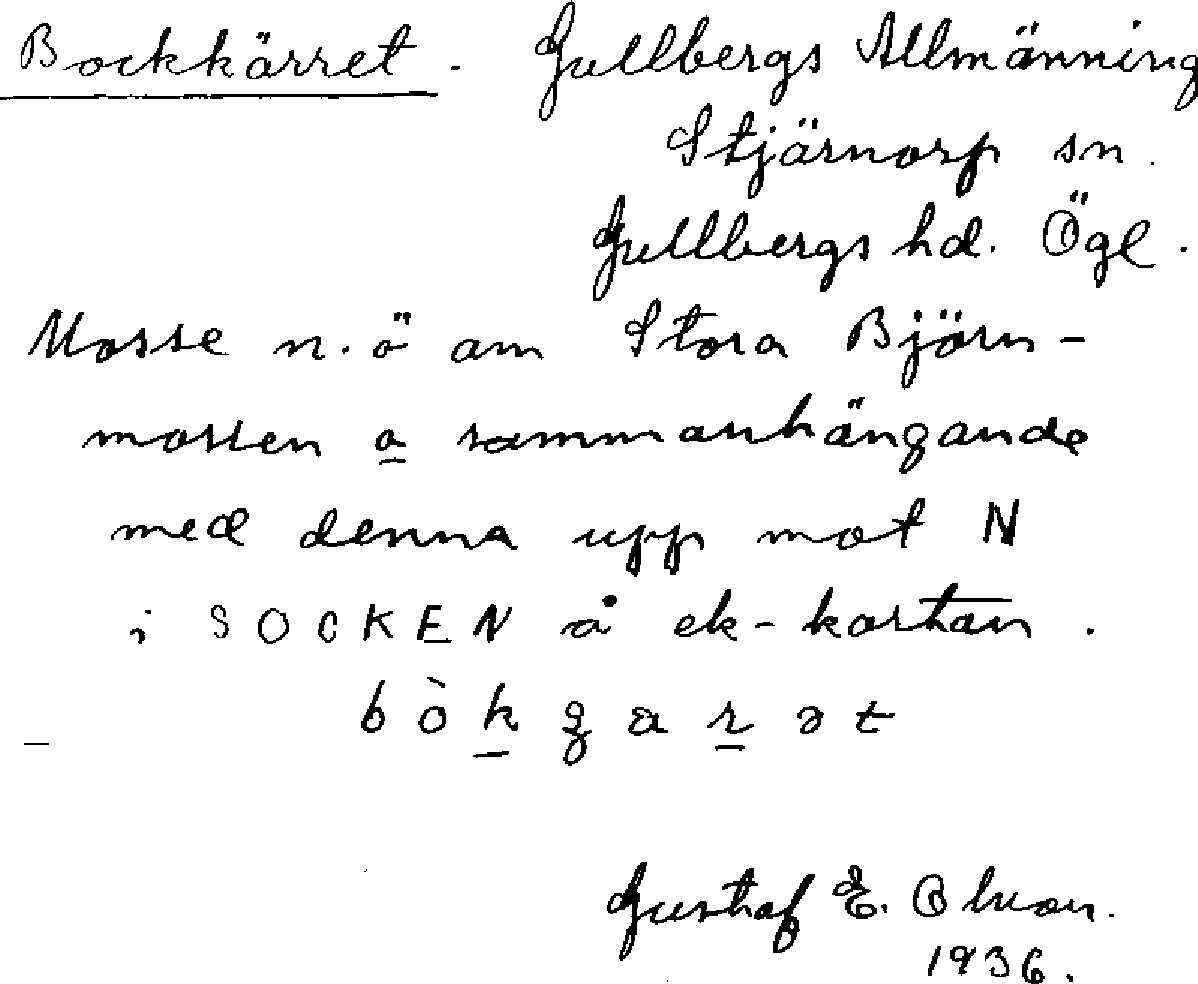 Bockkärret. Gullbergs Allmänning
Stjärnorp sn.
Gullbergs hd. Ögl.
Mosse n.ö om Stora Björn-
mossen o sammanhängande
med denna upp mot N
i SOCKEN å ek-kartan.
bòkgarət
Gustaf E. Olsson.
1936.